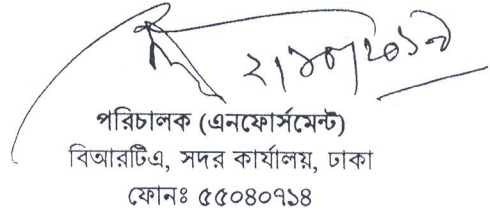 ২/১০/২০১৯
পরিচালক (এনফোর্সমেন্ট)
বিআরটিএ, সদর কার্যালয়, ঢাকা
ফোনঃ ৫৫০৪০৭১৪